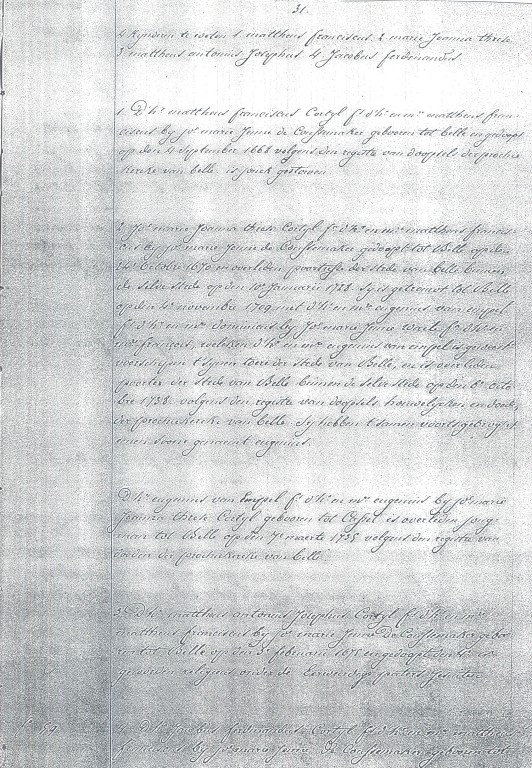 31.
4 kynderen te weten 1. mattheus franciscus 2 marie Joanna therese
3 mattheus antonius Josephus 4 Jacobus ferdinandus.
1. D'hr. mattheus franciscus Cortyl fs. d'hr. en mr. mattheus fran-
ciscus by jor. marie Jenne de Coussemaker geboren tot belle en gedoopt
op den 4 september 1668 volgens den register van doopsels der prochie
kercke van belle is jonck gestorven
2. Jor. marie Joanna therese Cortyl fa. d'hr. en mr. mattheus francis-
cus by jor. marie Jenne de Coussemaker gedoopt tot Belle op den
octobre 1670 en overleden poortresse der stede van belle binnen
de selve stede op den 10e. Januarie 1728 sy is getrouwt tot Belle
op den 4e. novembre 1709 met d'hr. en mr. eugenius van empel
fs. d'hr. en mr. dominicus by Jor. marie Jenne fa. d'hr. en
mr. francois, welcken d'hr. en mr. eugenius van empel is geweest
voorschepen t'synen toere der stede van Belle, en is overleden
poorter der stede van Belle binnen de selve stede op den 6e. octo-
bre 1738 volgens den register van doopsels houwelycken en dooden
der prochie kercke van belle. Sy hebben t'samen voorts gebrogt
eenen soone genaemt eugenius.
D'hr. eugenius van Empel fs. d'hr. en mr. eugenius by jor. marie
Joanna therese Cortyl geboren tot Cassel is overleden jong-
man tot Belle op den 7e. maerte 1735 volgens den register van
dooden der prochie kercke van belle.
3. D'hr. mattheus antonius Josephus Cortyl fs. d'hr. en mr.
mattheus franciscus by jor. marie Jenne De Coussemaker gebo-
ren tot Belle op den februarii en gedoopt is
geworden religieus onder de Eerweerdige paters Jesuiten
4. D'hr. Jacobus ferdinandus Cortyl fs. d'hr. en mr. mattheus
franciscus by jor. marie Jenne De Coussemaker geboren tot